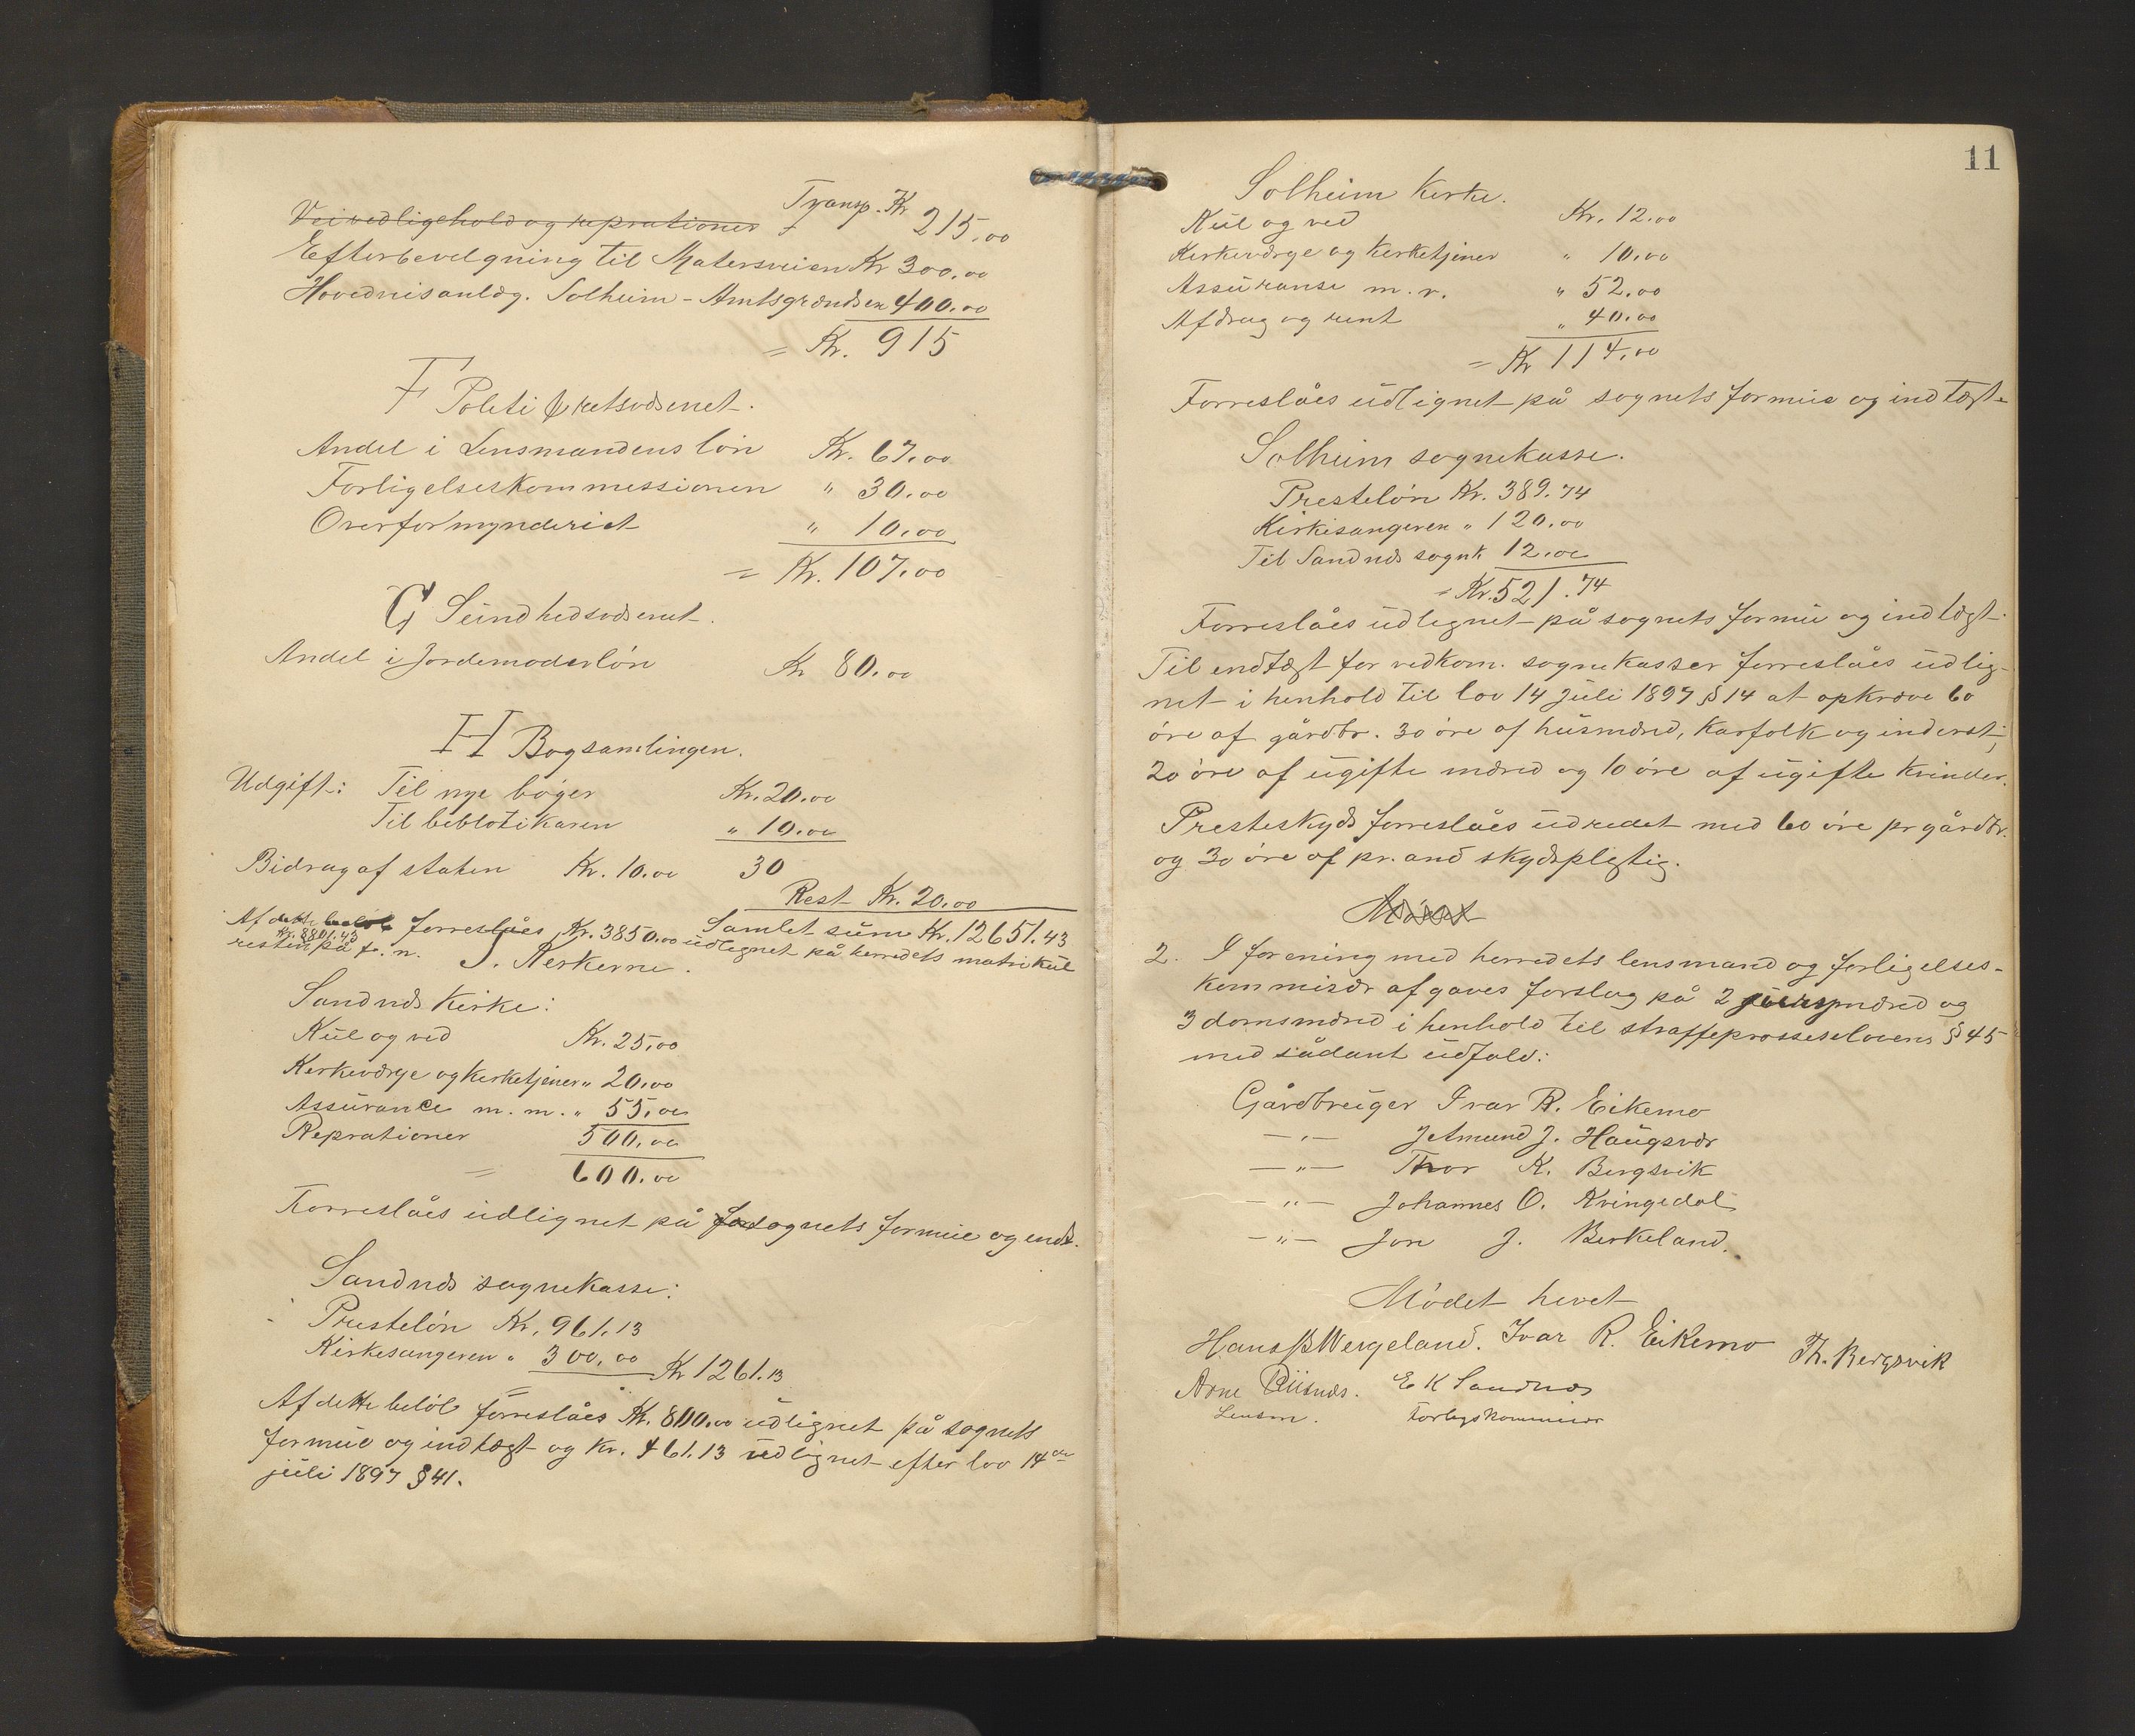 Transp. Kr 215,00
Veivedligehold og reprationer
Efterbevelgning til Matersveien Kr 300.00
Hovedveisanlæg. Solheim - Amtsgrændsen 400.00
= Kr. 915
F Politi & retsvæsenet.
Andel i Lensmandens løn Kr. 67.00
Forligelseskommessionen " 30.00
Overformynderiet " 10.00
= Kr. 107.00
G Sundhedsvæsenet.
Andel i Jordemoderløn Kr 80.00
H Bogsamlingen.
Udgift: Til nye bøger Kr. 20.00
Til beblotikaren " 10.00
Bidrag af staten Kr. 10.00 30
Rest Kr. 20.00
Samlet sum Kr. 12651.43
Af dette beløb forreslåes Kr. 3850.00 udlignet på herredets matrikul
Kr. 8801.43
resten på f. n.
J. Kerkerne.
Sandnæs Kirke:
Kul og ved Kr. 25,00
Kerkeværge og Kerketjener " 20.00
Assurance m. m. " 55,00
Reprationer 500.00
= 600.00
Forreslåes udlignet på sognets formue og endt.
Sandnæs sognekasse:
Presteløn Kr. 961.13
Kirkesangeren " 300.00 Kr 1261.13
Af dette beløb forreslåes Kr. 800.00 udlignet på sognets
formue og indtægt og Kr. 461.13 udlignet efter lov 14de
juli 1897 § 41.
11
Solheim Kerke.
Kul og ved Kr. 12.00
Kerkeværge og Kerketjener " 10.00
Assuranse m. v. " 52.00
Afdrag og rent " 40.00
= Kr 114.00
Forreslåes udlignet på sognets formue og indtægt.
Solheim sognekasse.
Presteløn Kr. 389.74
Kirkisangeren " 120.00
Til Sandnæs sognk 12.00
= Kr. 521.74
Forreslåes udlegnet på sognets formue og indtægt.
Til endtægt for vedkom. sognekasser forreslåes udlig-
net i henhold til lov 14 Juli 1897 § 14 at opkræve 60
øre af gårdbr. 30 øre af husmænd, Karfolk og inderst,
20 øre af ugifte mænd og 10 øre af ugifte Kvinder.
Presteskyds forreslåes udredet med 60 øre pr gårdbr.
og 30 øre af pr. and skydspligtig.
Mødet
2. I forening med herredets lensmand og forligelses-
kommisær afgaves forslag på 2 jurymænd og
3 domsmænd i henhold til straffeprossesslovens § 45
med sådant udfald:
Gårdbruger Ivar R. Eikemo
— " — J Amund J. Haugsvær
— " — Thor K. Bergsvik
— " — Johannes O. Kvingedal
— " — Jon J. Berkeland.
Mødet hevet
Hans B Wergeland. Ivar R. Eikemo Th. Bergsvik
Arne Risnæs. E K Sandnæs
Lensm. Forligskommisær